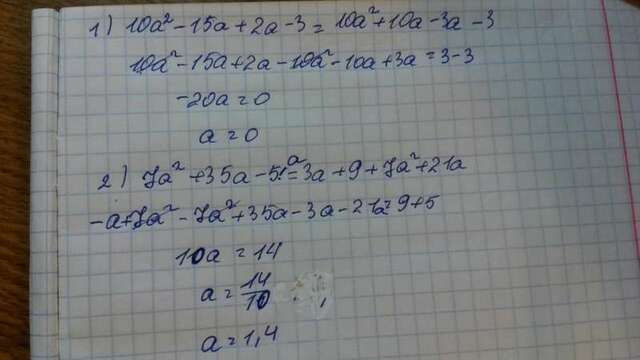 1) 10a² - 15a + 2a - 3 = 10a² + 10a - 3a - 3
10a² - 15a + 2a - 10a² - 10a + 3a = 3 - 3
-20a = 0
a = 0
2) 7a² + 35a - 5 - a = 3a + 9 + 7a² + 21a
-a + 7a² - 7a² + 35a - 3a - 21a = 9 + 5
10a = 14
a = 14/10
a = 1,4